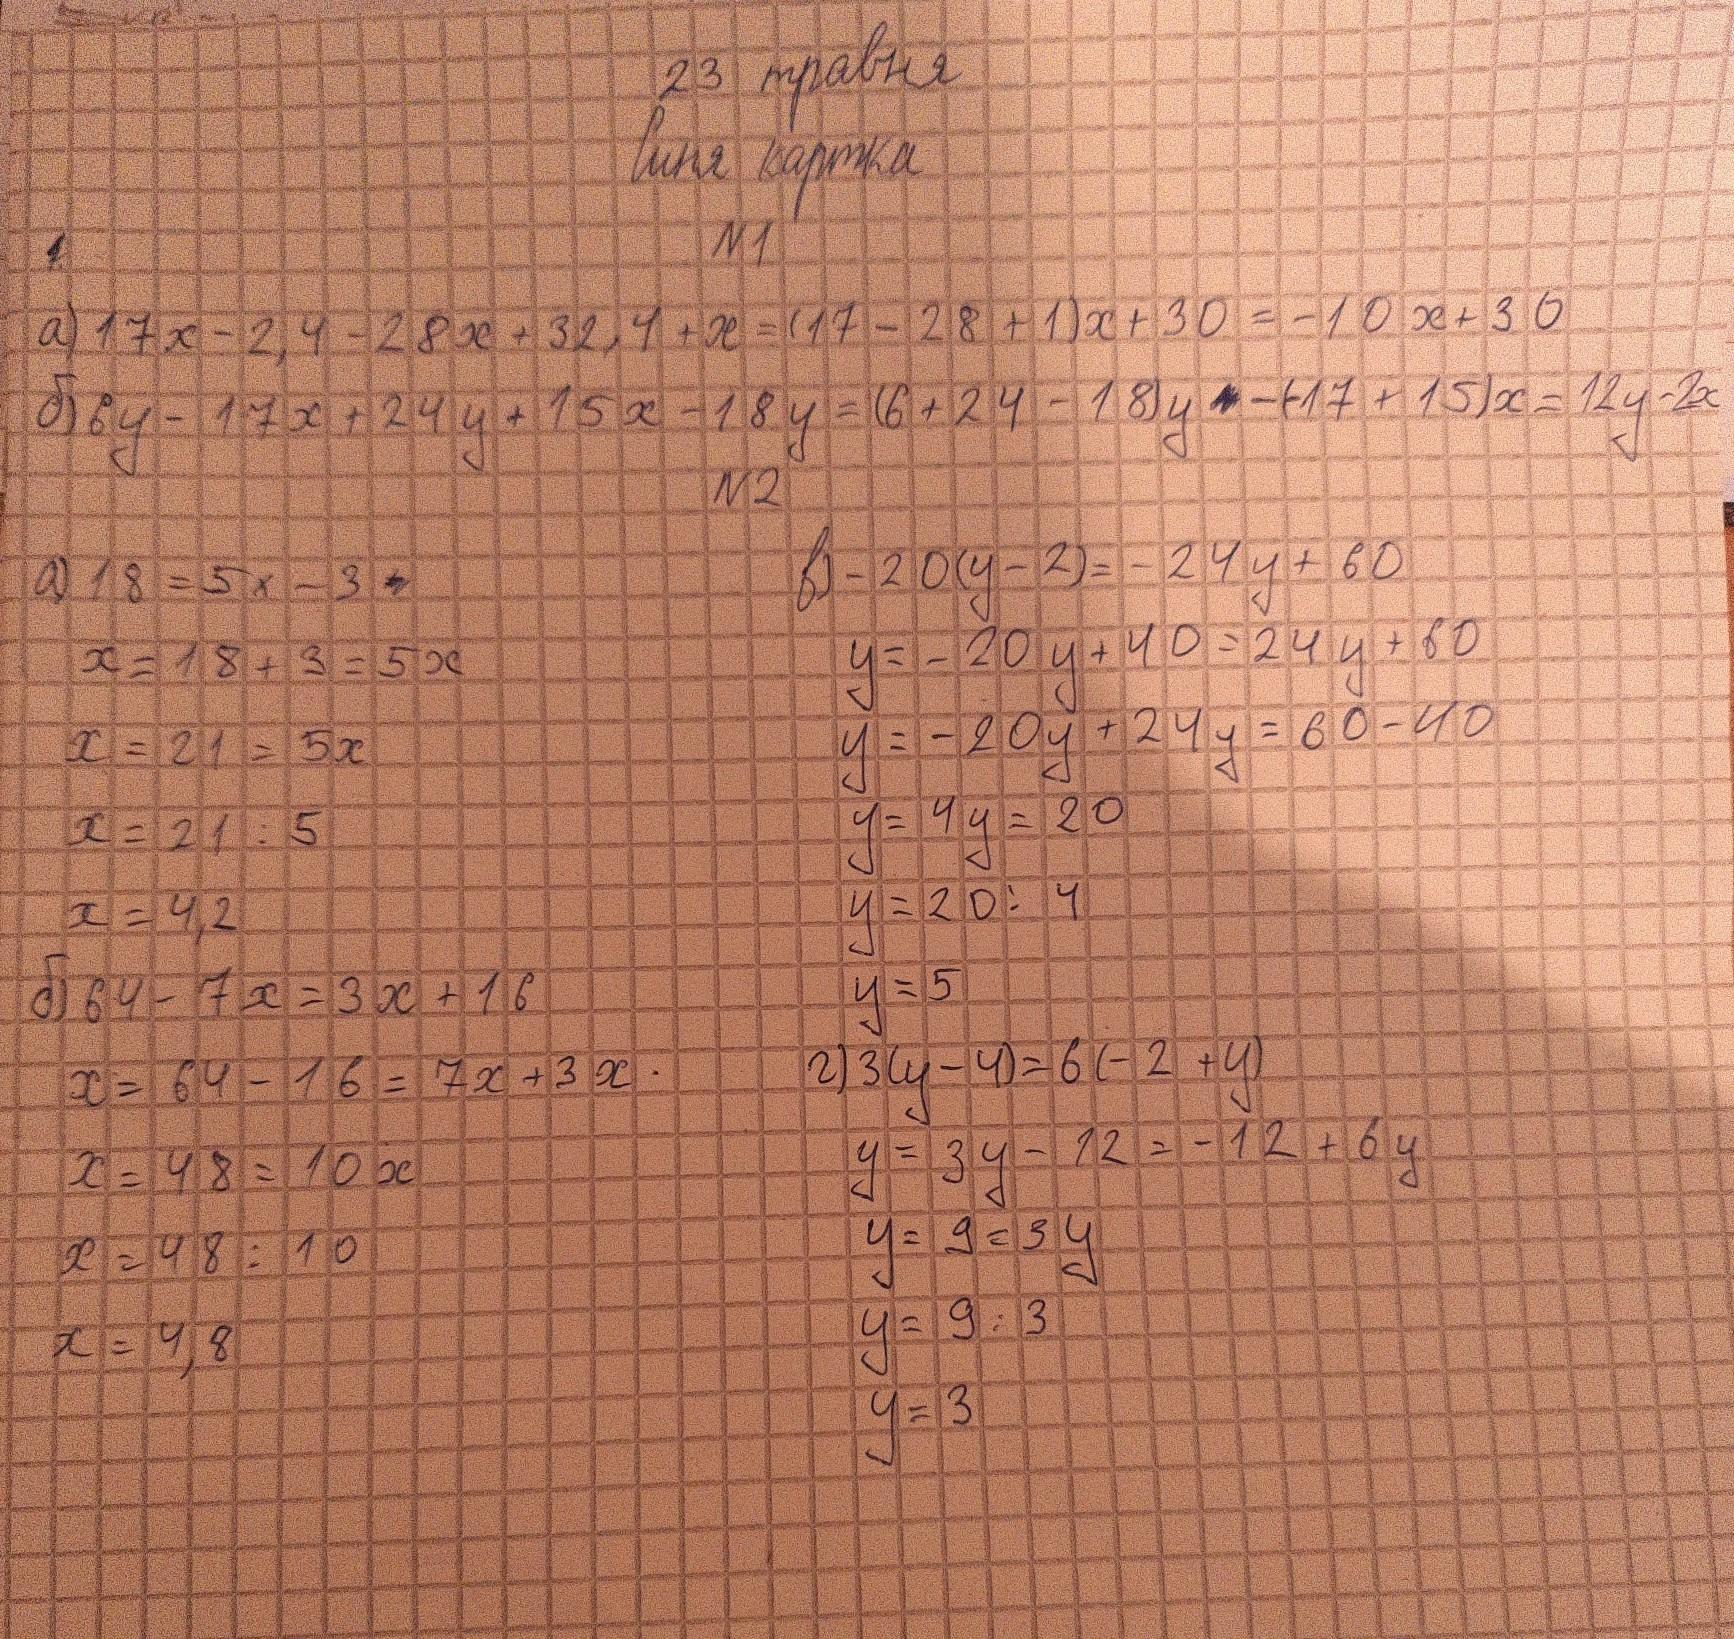 23 травня
Синя картка
1
N1
а) 17x - 2,4 - 28x + 32,4 + x = (17 - 28 + 1)x + 30 = -10x + 30
б) 6y - 17x + 24y + 15x - 18y = (6 + 24 - 18)y - (-17 + 15)x = 12y - 2x
N2
а) 18 = 5x - 3
x = 18 + 3 = 5x
x = 21 = 5x
x = 21 : 5
x = 4,2
б) 64 - 7x = 3x + 16
x = 64 - 16 = 7x + 3x
x = 48 = 10x
x = 48 : 10
x = 4,8
в) -20(y - 2) = -24y + 60
y = -20y + 40 = 24y + 60
y = -20y + 24y = 60 - 40
y = 4y = 20
y = 20 : 4
y = 5
г) 3(y - 4) = 6(-2 + y)
y = 3y - 12 = -12 + 6y
y = 9 = 3y
y = 9 : 3
y = 3